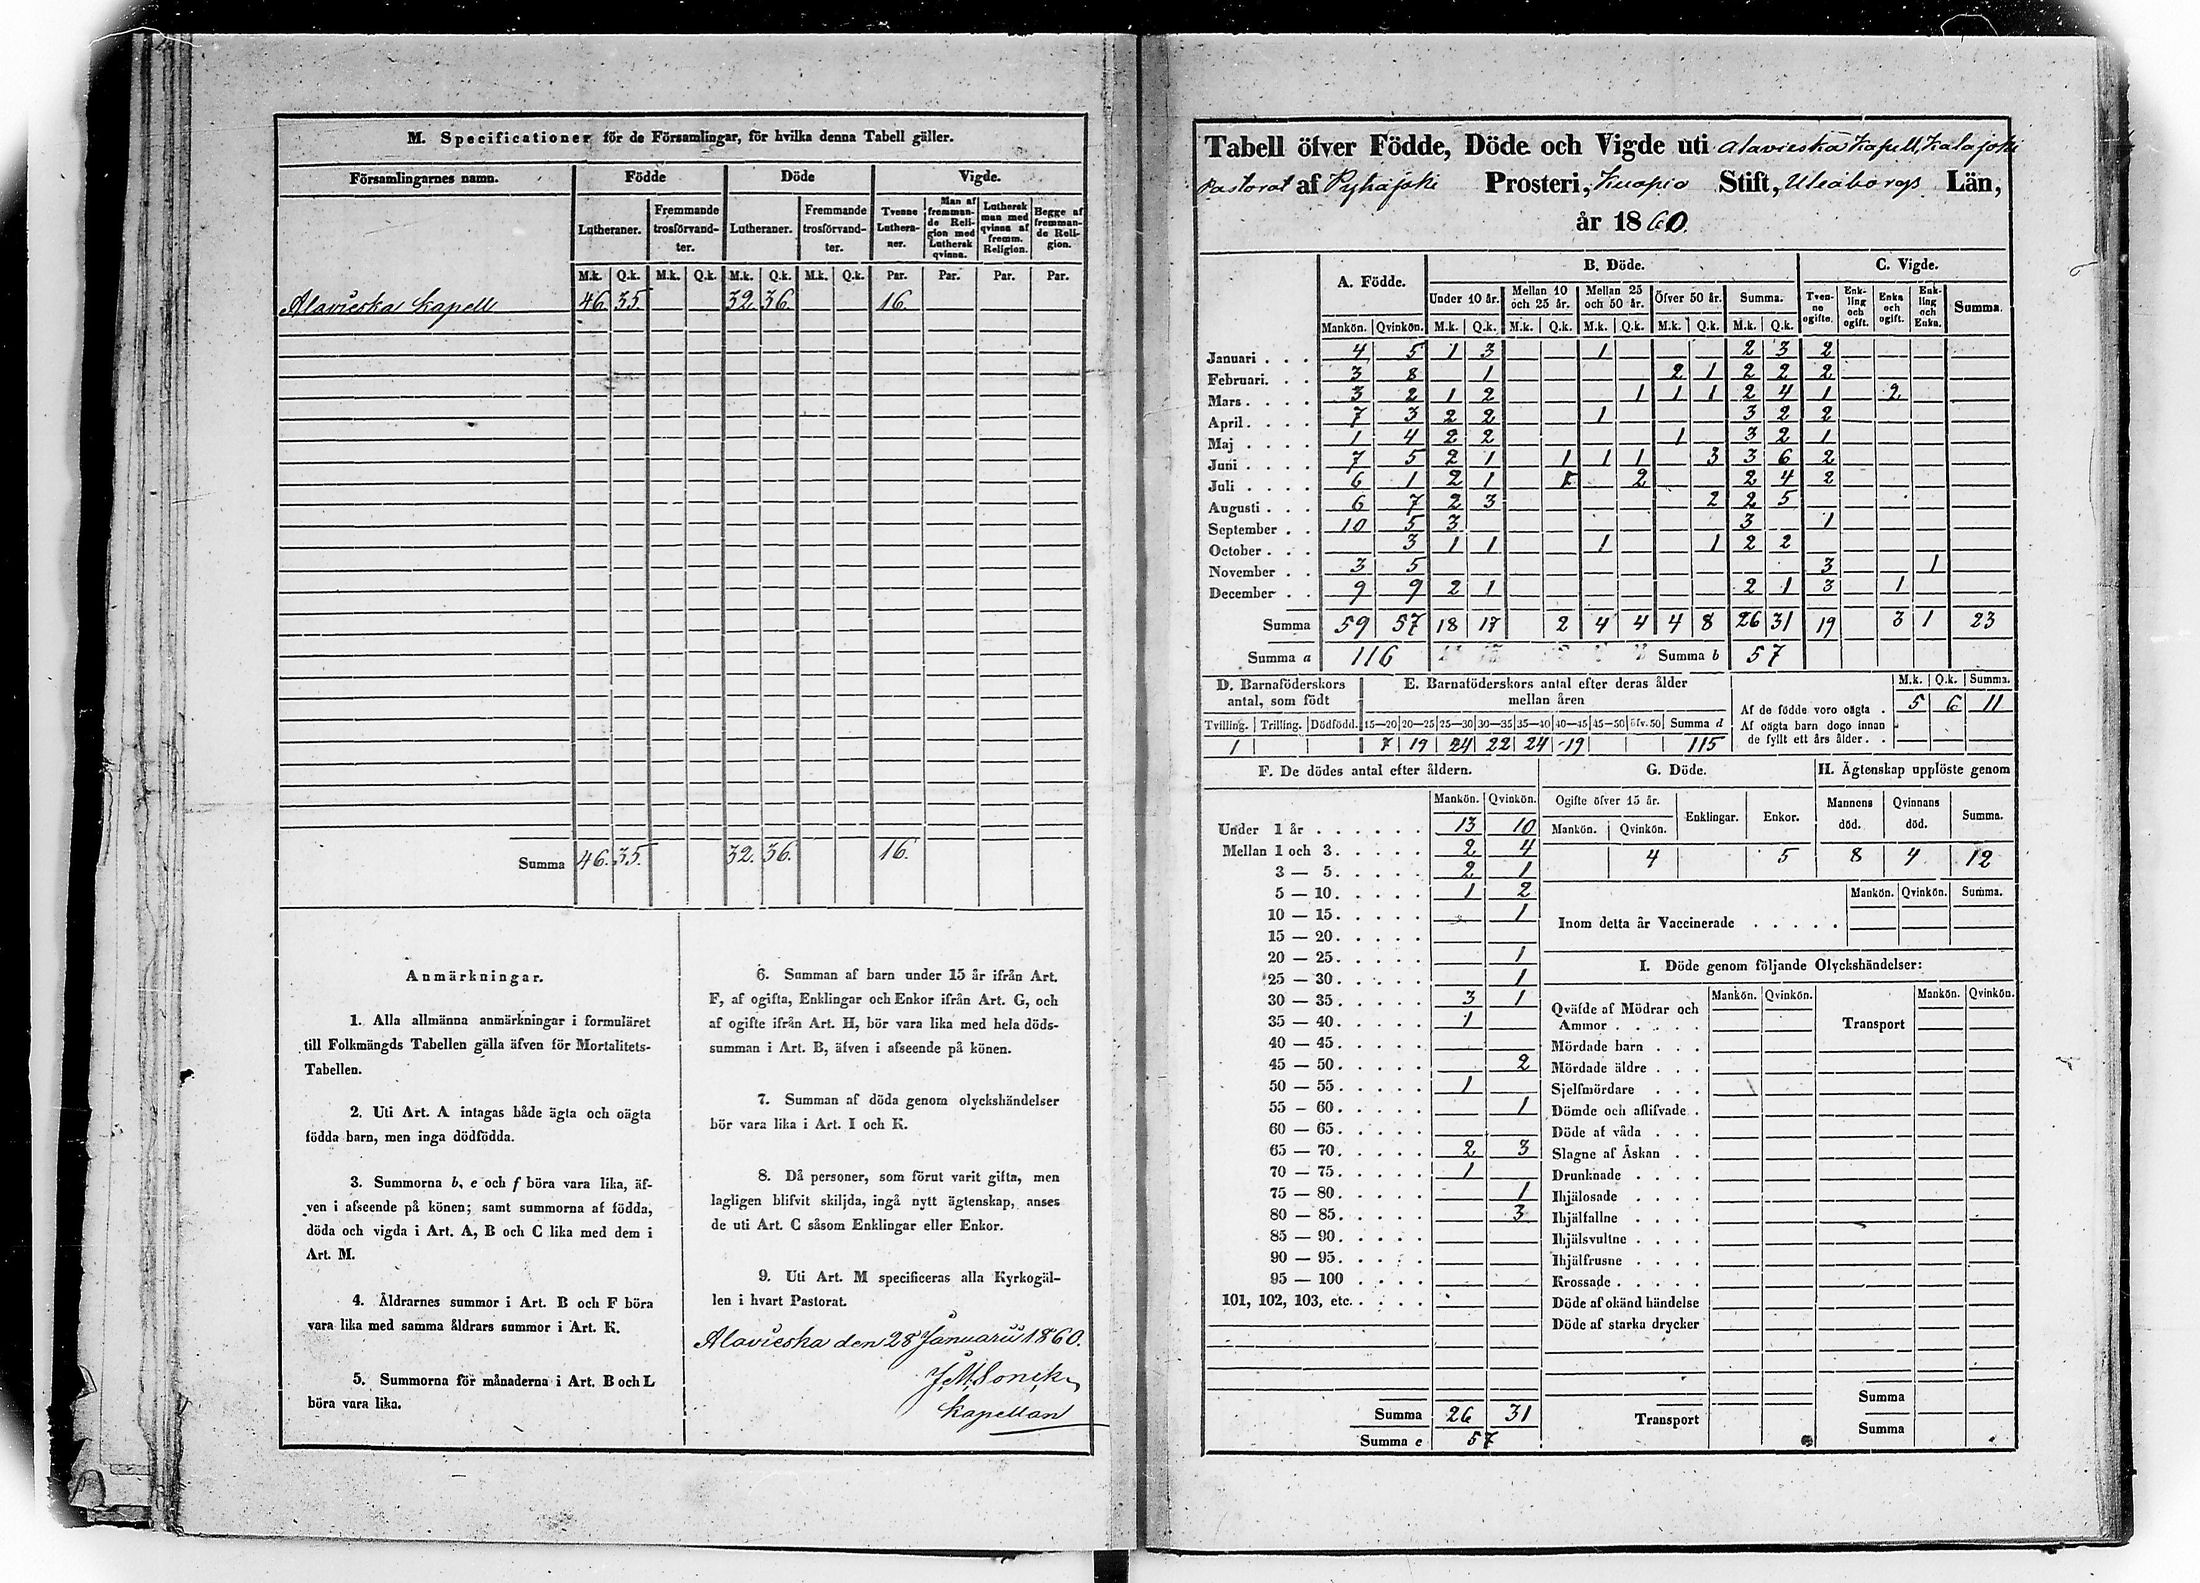 M. Specificationer för de Församlingar, för hvilka denna Tabell gäller.
Församlingarnes namn. Födde Döde Vigde.
Lutheraner. Fremmande trosförvandter. Lutheraner. Fremmande trosförvandter. Tvenne Lutheraner. Man af fremmande Religion med Luthersk qvinna. Luthersk man med qvinna af fremm. Religion. Begge af fremmande Religion.
M.k. Q.k. M.k. Q.k. M.k. Q.k. M.k. Q.k. Par. Par. Par. Par.
Alavieska Kapell 46. 35. 32. 36. 16.
Summa 46. 35. 32. 36. 16.
Anmärkningar.
1. Alla allmänna anmärkningar i formuläret
till Folkmängds Tabellen gälla äfven för Mortalitets-
Tabellen.
2. Uti Art. A intagas både ägta och oägta
födda barn, men inga dödfödda.
3. Summorna b, e och f böra vara lika, äf-
ven i afseende på könen; samt summorna af födda,
döda och vigda i Art. A, B och C lika med dem i
Art. M.
4. Åldrarnes summor i Art. B och F böra
vara lika med samma åldrars summor i Art. K.
5. Summorna för månaderna i Art. B och L
böra vara lika.
6. Summan af barn under 15 år ifrån Art.
F, af ogifta, Enklingar och Enkor ifrån Art. G, och
af ogifte ifrån Art. H, bör vara lika med hela döds-
summan i Art. B, äfven i afseende på könen.
7. Summan af döda genom olyckshändelser
bör vara lika i Art. I och K.
8. Då personer, som förut varit gifta, men
lagligen blifvit skiljda, ingå nytt ägtenskap, anses
de uti Art. C såsom Enklingar eller Enkor.
9. Uti Art. M specificeras alla Kyrkogäl-
len i hvart Pastorat.
Alavieska den 28 Januarii 1860.
Kapellan
Tabell öfver Födde, Döde och Vigde uti Alavieska Kapell, Kalajoki
Pastorat af Pyhäjoki Prosteri, Kuopio Stift, Uleåborgs Län,
år 1860.
A. Födde. B. Döde. C. Vigde.
Under 10 år. Mellan 10 och 25 år. Mellan 25 och 50 år. Öfver 50 år. Summa. Tvenne ogifte. Enkling och ogift. Enka och ogift. Enkling och Enka. Summa.
Mankön. Qvinkön. M.k. Q.k. M.k. Q.k. M.k. Q.k. M.k. Q.k. M.k. Q.k.
Januari . . . 4 5 1 3 1 2 3 2
Februari. . . 3 8 1 2 1 2 2 2
Mars . . . . 3 2 1 2 1 1 1 2 4 1 2
April. . . . 7 3 2 2 1 3 2 2
Maj . . . . 1 4 2 2 1 3 2 1
Juni . . . . 7 5 2 1 1 1 1 3 3 6 2
Juli . . . . 6 1 2 1 1 2 2 4 2
Augusti . . . 6 7 2 3 2 2 5
September . . 10 5 3 3 1
October . . . 3 1 1 1 1 2 2
November . . 3 5 3 1
December . . 9 9 2 1 2 1 3 1
Summa 59 57 18 17 2 4 4 4 8 26 31 19 3 1 23
Summa a 116 Summa b 57
D. Barnaföderskors antal, som födt
Tvilling. Trilling. Dödfödd.
1
E. Barnaföderskors antal efter deras ålder mellan åren
15—20 20—25 25—30 30—35 35—40 40—45 45—50 öfv. 50 Summa d
7 19 24 22 24 19 115
M.k. Q.k. Summa.
Af de födde voro oägta . 5 6 11
Af oägta barn dogo innan
de fyllt ett års ålder . .
F. De dödes antal efter åldern.
Mankön. Qvinkön.
Under 1 år . . . . . . 13 10
Mellan 1 och 3. . . . . 2 4
3 — 5. . . . . 2 1
5 — 10. . . . . 1 2
10 — 15. . . . . 1
15 — 20. . . . .
20 — 25. . . . . 1
25 — 30. . . . . 1
30 — 35. . . . . 3 1
35 — 40. . . . . 1
40 — 45. . . . .
45 — 50. . . . . 2
50 — 55. . . . . 1
55 — 60. . . . . 1
60 — 65. . . . .
65 — 70. . . . . 2 3
70 — 75. . . . . 1
75 — 80. . . . . 1
80 — 85. . . . . 3
85 — 90. . . . .
90 — 95. . . . .
95 — 100 . . . .
101, 102, 103, etc. . . . .
Summa 26 31
Summa e 57
G. Döde.
Ogifte öfver 15 år. Enklingar. Enkor.
Mankön. Qvinkön.
4 5
H. Ägtenskap upplöste genom
Mannens död. Qvinnans död. Summa.
8 4 12
Mankön. Qvinkön. Summa.
Inom detta år Vaccinerade . . . . .
I. Döde genom följande Olyckshändelser:
Mankön. Qvinkön. Mankön. Qvinkön.
Qväfde af Mödrar och
Ammor . . . . . Transport
Mördade barn . . .
Mördade äldre . . .
Sjelfmördare . . .
Dömde och aflifvade .
Döde af våda . . .
Slagne af Åskan . .
Drunknade . . . .
Ihjälosade . . . .
Ihjälfallne . . . .
Ihjälsvultne . . . .
Ihjälfrusne . . . .
Krossade . . . . .
Döde af okänd händelse
Döde af starka drycker
Summa
Transport
Summa